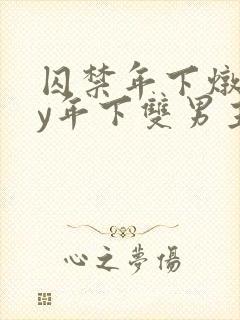 囚禁年下燉
y年下雙男主
心之夢傷